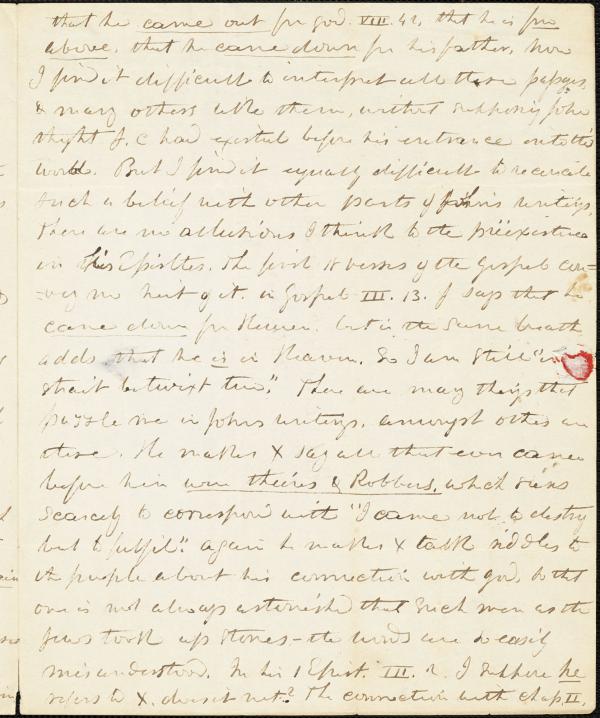 that he came out fm god. VIII. 42, that he is fm
above, that he came down fm his father, now
I find it difficult to interpret all these passges,
& many others like them, without supposing John
thght J. C had existed before his entrance into the
world. But I find it equally difficult to reconcile
such a belief with other parts of John's writings,
there are no allusions I think to the prëexistence
in his Epistles. The first 18 verses of the Gospel con=
=vey no hint of it. in Gospel III. 13. J says that he
came down fm Heaven. but in the same breath
adds that he is in Heaven. So I am still "in
strait betwixt two". There are many things that
puzzle me in Johns writings, amongst others are
these. He makes X say all that ever came
before him were theives & Robbers, which seems
scarcely to correspond with "I came not to destroy
but to fulfil". again he makes X talk riddles to
the people about his connection with god, so that
one is not always astonished that such men as the
Jews took up stones - the words are so easily
misunderstood. In his 1 Epist. III. 2. I suppose he
refers to X. does it not? The connection with chap. II.